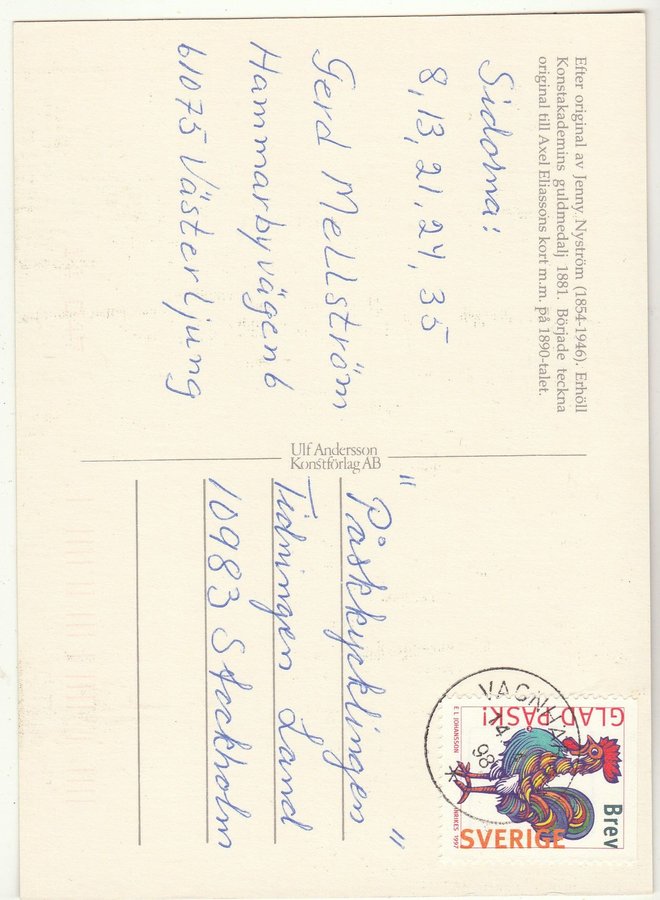 Efter original av Jenny Nyström (1854-1946). Erhöll
Konstakademins guldmedalj 1881. Började teckna
original till Axel Eliassons kort m.m. på 1890-talet.
Sidorna:
8, 13, 21, 24, 35
Gerd Mellström
Hammarbyvägen 6
61075 Västerljung
Ulf Andersson
Konstförlag AB
"Påskkycklingen"
Tidningen Land
10983 Stockholm
VAGNHÄ
14
98
GLAD PÅSK!
E L JOHANSSON
INRIKES 1997
Brev
SVERIGE